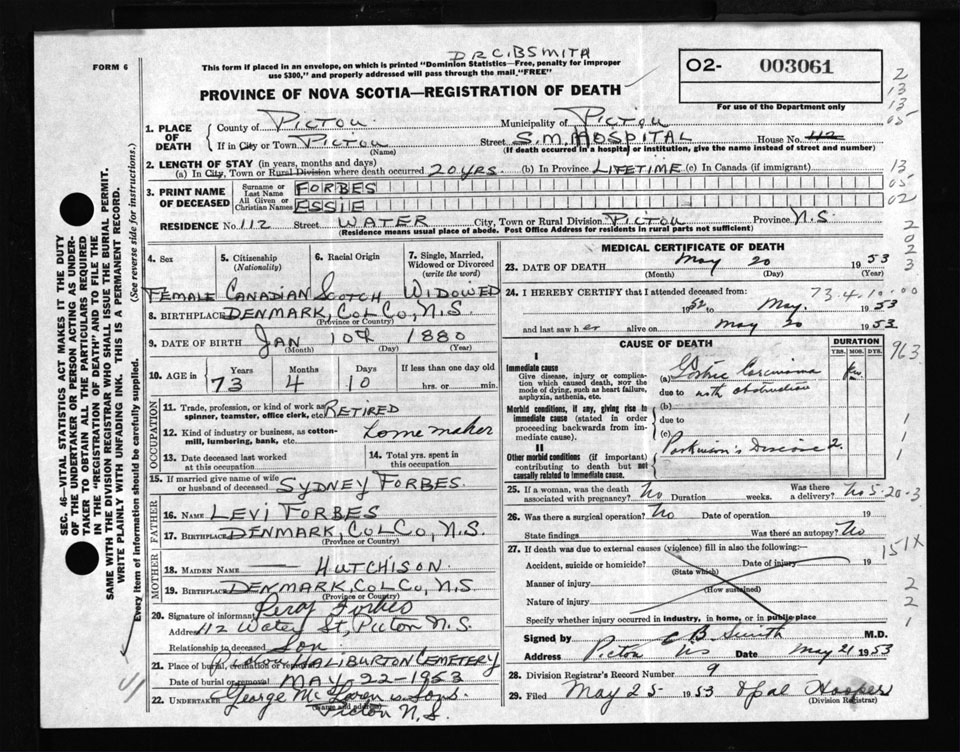 DR C.B SMITH
FORM 6
This form if placed in an envelope, on which is printed "Dominion Statistics—Free, penalty for improper
use $300," and properly addressed will pass through the mail "FREE"
PROVINCE OF NOVA SCOTIA—REGISTRATION OF DEATH
02- 003061
For use of the Department only
2
13
13
05
13
05
02
2
0
2
3
SEC. 46—VITAL STATISTICS ACT MAKES IT THE DUTY
OF THE UNDERTAKER OR PERSON ACTING AS UNDER-
TAKER TO OBTAIN ALL THE PARTICULARS REQUIRED
IN THE "REGISTRATION OF DEATH" AND TO FILE THE
SAME WITH THE DIVISION REGISTRAR WHO SHALL ISSUE THE BURIAL PERMIT.
WRITE PLAINLY WITH UNFADING INK. THIS IS A PERMANENT RECORD.
Every item of information should be carefully supplied. (See reverse side for instructions.)
1. PLACE OF DEATH
County of PICTOU Municipality of PICTOU
If in City or Town PICTOU Street S.M. HOSPITAL House No. 112
(Name) (If death occurred in a hospital or institution, give the name instead of street and number)
2. LENGTH OF STAY (in years, months and days)
(a) In City, Town or Rural Division where death occurred 20 YRS. (b) In Province LIFETIME (c) In Canada (if immigrant)
3. PRINT NAME OF DECEASED
Surname or Last Name FORBES
All Given or Christian Names ESSIE
RESIDENCE No. 112 Street WATER City, Town or Rural Division PICTOU Province N.S.
(Residence means usual place of abode. Post Office Address for residents in rural parts not sufficient)
4. Sex 5. Citizenship (Nationality) 6. Racial Origin 7. Single, Married, Widowed or Divorced (write the word)
FEMALE CANADIAN SCOTCH WIDOWED
8. BIRTHPLACE DENMARK, COL CO, N.S.
(Province or Country)
9. DATE OF BIRTH JAN 10th 1880
(Month) (Day) (Year)
10. AGE in Years Months Days If less than one day old
73 4 10 hrs. or min.
OCCUPATION
11. Trade, profession, or kind of work as spinner, teamster, office clerk, etc. RETIRED
12. Kind of industry or business, as cotton-mill, lumbering, bank, etc. Home maker
13. Date deceased last worked at this occupation 14. Total yrs. spent in this occupation
15. If married give name of wife or husband of deceased SYDNEY FORBES.
FATHER
16. NAME LEVI FORBES
17. BIRTHPLACE DENMARK, COL CO, N.S.
(Province or Country)
MOTHER
18. MAIDEN NAME — HUTCHISON
19. BIRTHPLACE DENMARK, COL CO, N.S
(Province or Country)
20. Signature of informant Forbes
Address 112 Water St, Pictou N.S.
Relationship to deceased Son
21. Place of burial, cremation or removal HALIBURTON CEMETERY
Date of burial or removal MAY-22-1953
22. UNDERTAKER George McLaren & Sons.
(Name and address) Pictou N.S.
MEDICAL CERTIFICATE OF DEATH
23. DATE OF DEATH May 20 1953
(Month) (Day) (Year)
24. I HEREBY CERTIFY that I attended deceased from: 73-4-10-00
1952 May 1953
and last saw her alive on May 20 1953
CAUSE OF DEATH DURATION
YRS. MOS. DYS. 963
I
Immediate cause
Give disease, injury or complication which caused death, not the mode of dying, such as heart failure, asphyxia, asthenia, etc.
(a) Gastric Carcinoma
due to with obstruction
Morbid conditions, if any, giving rise to immediate cause (stated in order proceeding backwards from immediate cause).
(b)
due to
(c)
1
1
1
II
Other morbid conditions (if important) contributing to death but not causally related to immediate cause.
Parkinson's Disease 2.
25. If a woman, was the death associated with pregnancy? No Duration weeks. Was there a delivery? No 5-20-3
26. Was there a surgical operation? No Date of operation 19
State findings Was there an autopsy? No
27. If death was due to external causes (violence) fill in also the following:— 151X
Accident, suicide or homicide? Date of injury 19
(State which)
Manner of injury 2
(How sustained)
Nature of injury 2
Specify whether injury occurred in industry, in home, or in public place 1
Signed by C B Smith M.D.
Address Pictou NS Date May 21 1953
28. Division Registrar's Record Number 9
29. Filed May 25 1953 Opal Hooper
(Division Registrar)